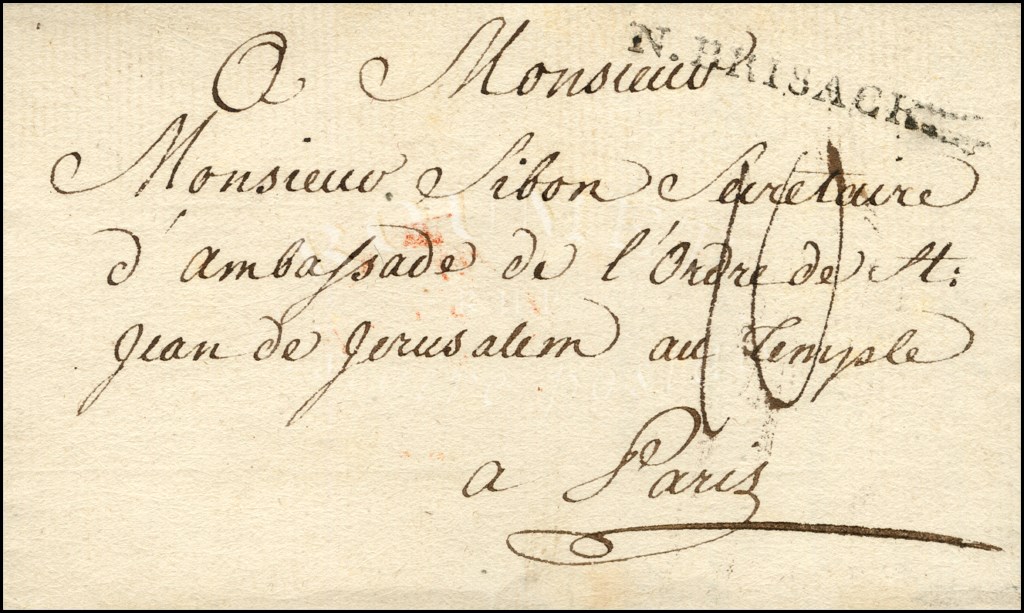 N. BRISACK
A Monsieur
Monsieur. Sibon Secretaire
d'ambassade de l'Ordre de St:
Jean de Jerusalem au Temple
a Paris
10